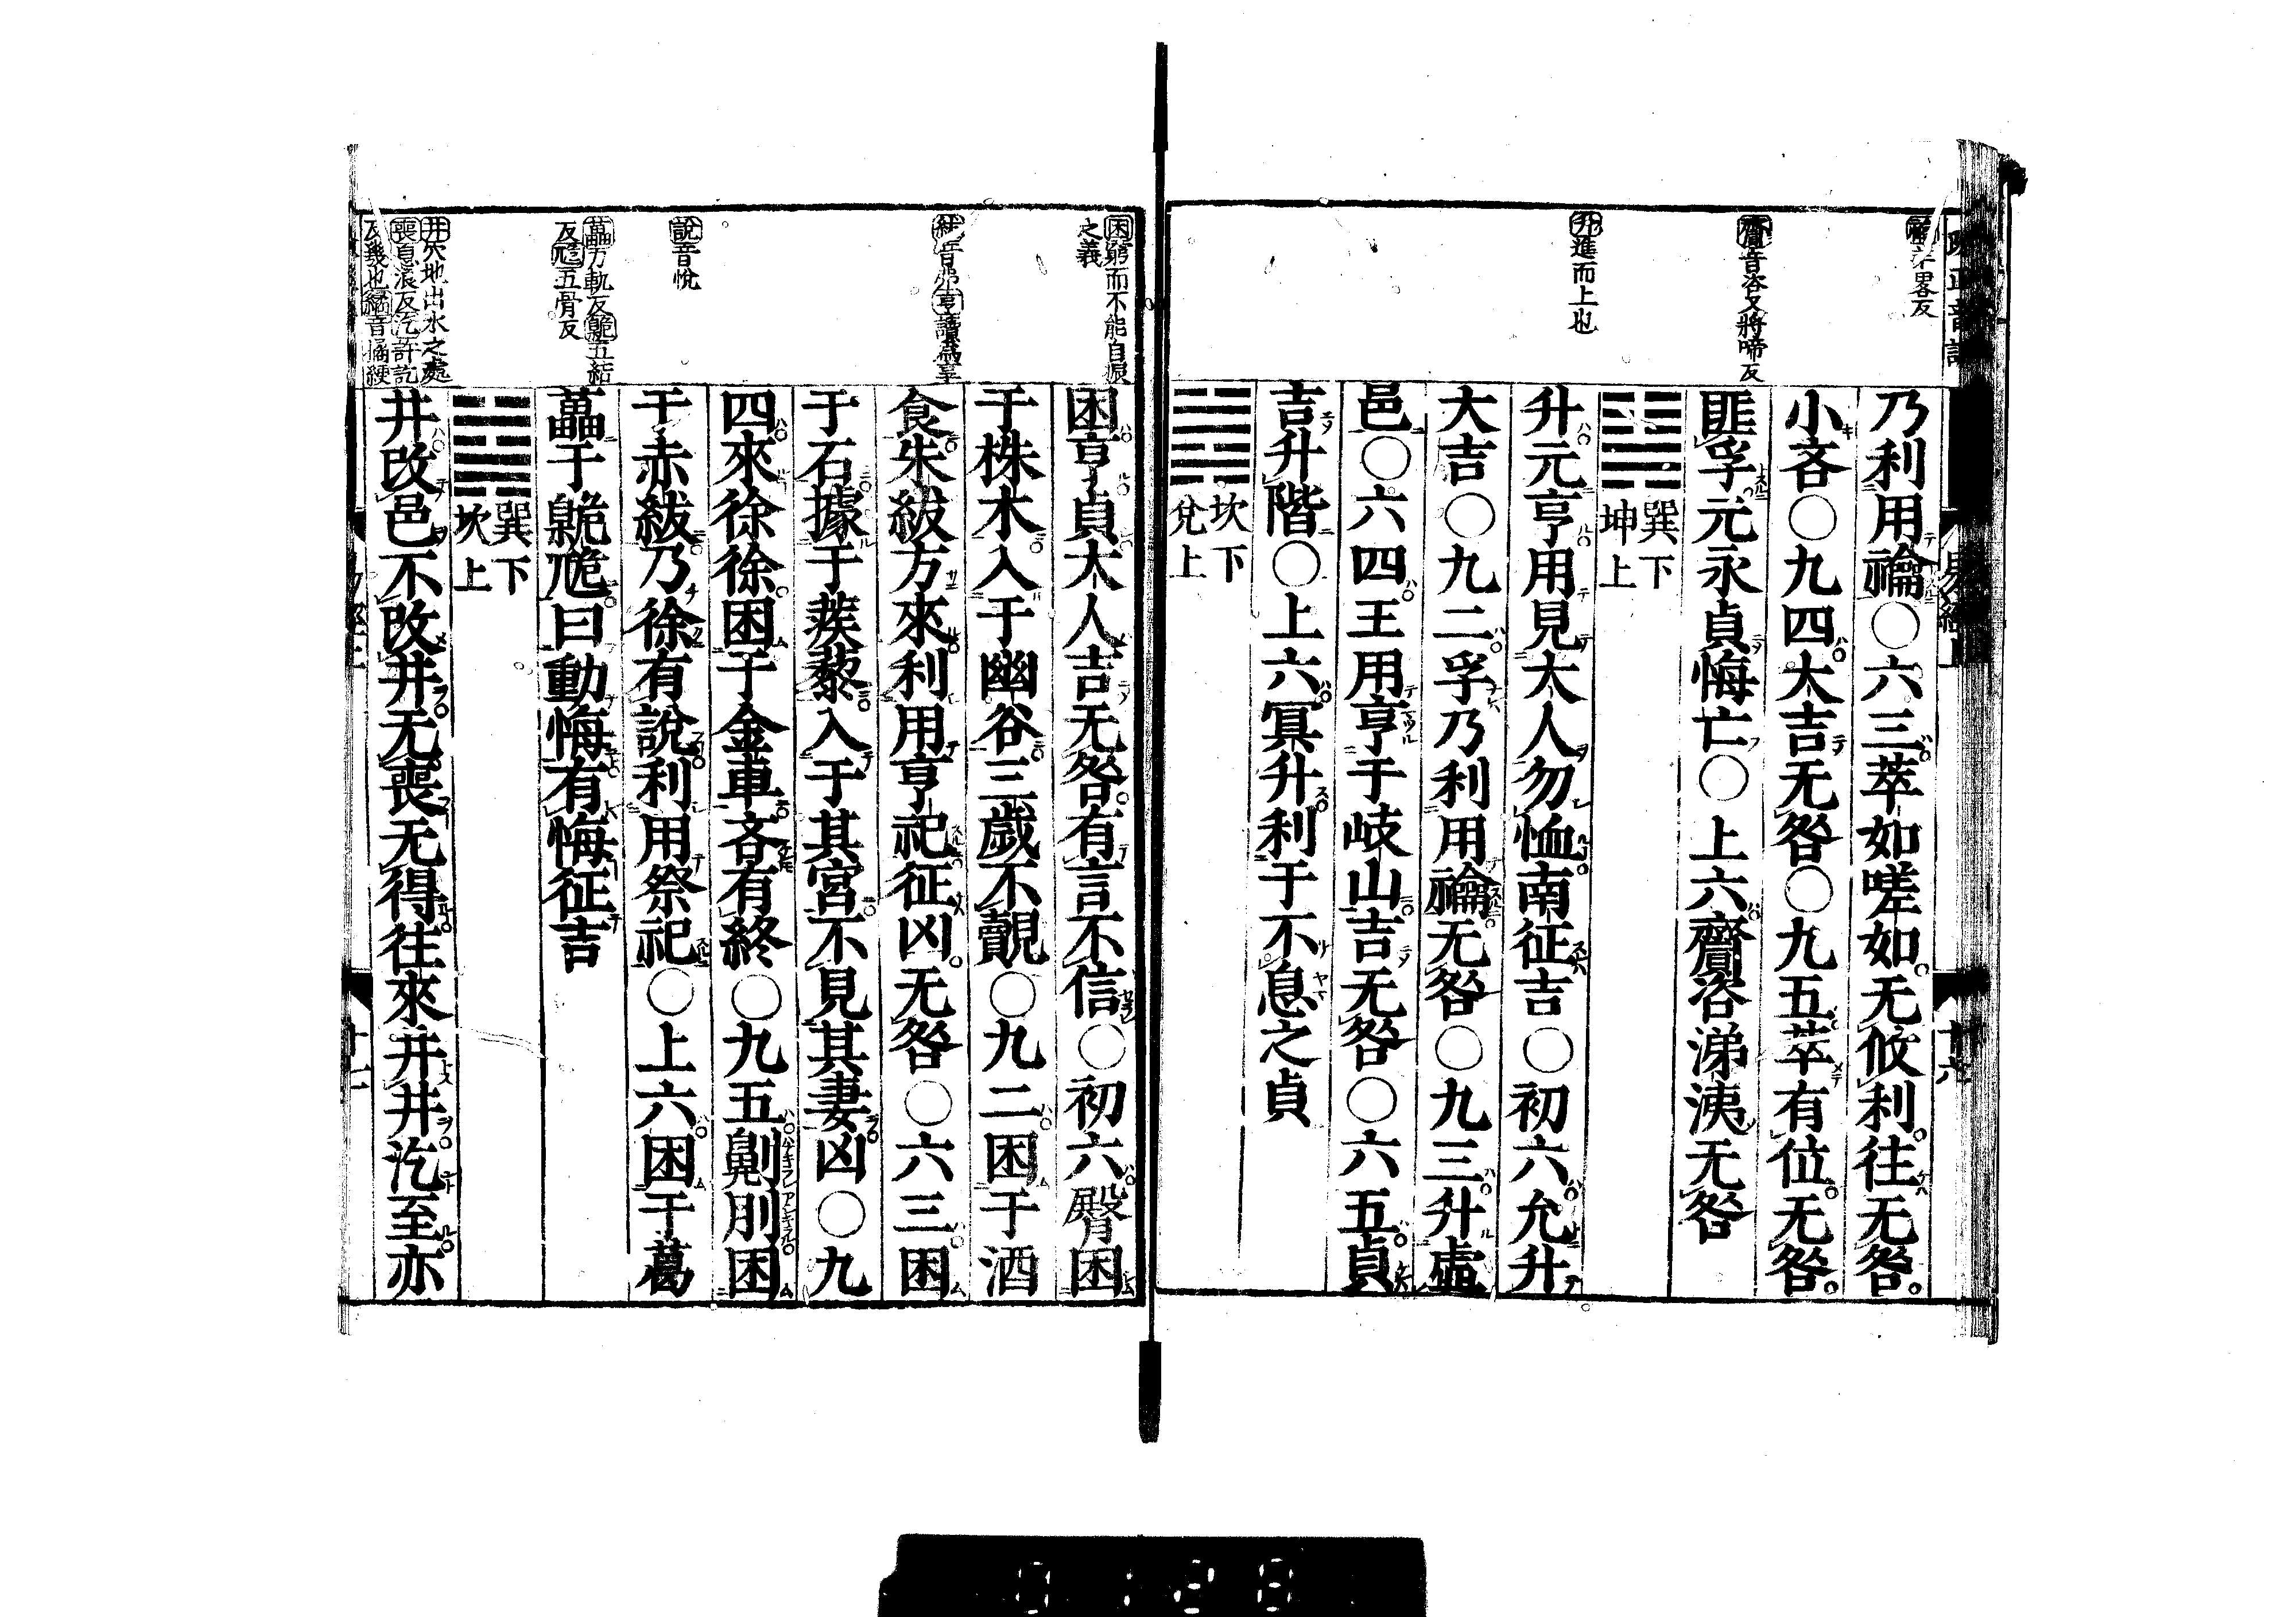 禴羊畧反
齎音咨又將啼反
升進而上也
乃利用禴○六三萃如嗟如无攸利往无咎
小吝○九四大吉无咎○九五萃有位无咎
匪孚元永貞悔亡○上六齎咨涕洟无咎
巽下
坤上
升元亨用見大人勿恤南征吉○初六允升
大吉○九二孚乃利用禴无咎○九三升虛
邑○六四王用亨于岐山吉无咎○六五貞
吉升階○上六冥升利于不息之貞
坎下
兌上
困窮而不能自振
之義
紱音弗亨讀爲享
說音悅
藟力軌反臲五結
反卼五骨反
井穴地出水之處
喪息浪反汔許訖
反幾也繘音橘綆
困亨貞大人吉无咎有言不信○初六臀困
于株木入于幽谷三歲不覿○九二困于酒
食朱紱方來利用亨祀征凶无咎○六三困
于石據于蒺藜入于其宮不見其妻凶○九
四來徐徐困于金車吝有終○九五劓刖困
于赤紱乃徐有說利用祭祀○上六困于葛
藟于臲卼曰動悔有悔征吉
巽下
坎上
井改邑不改井无喪无得往來井井汔至亦